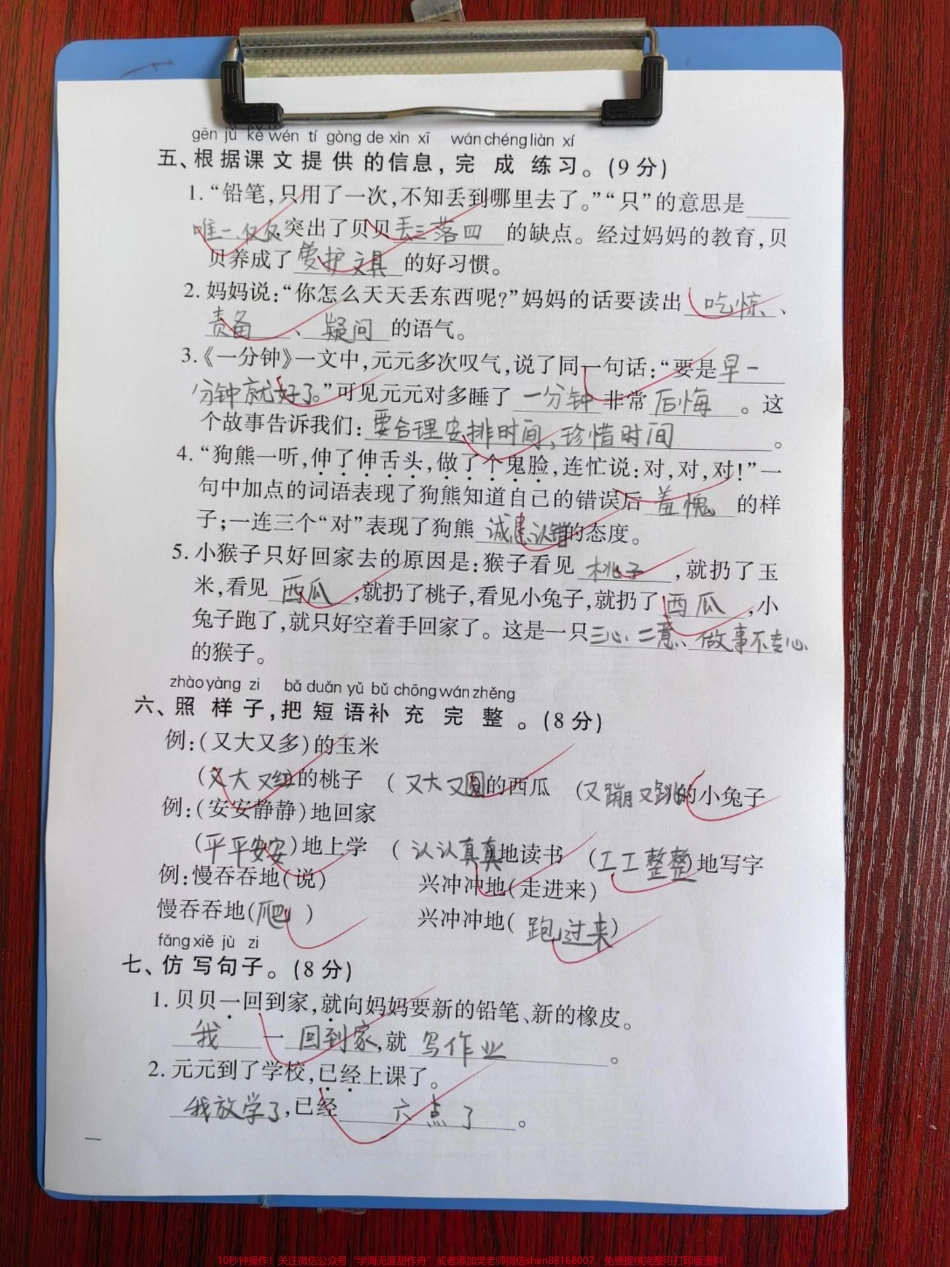 gēn jù kè wén tí gòng de xìn xī wán chéng liàn xí
五、根据课文提供的信息,完成练习。(9分)
1.“铅笔,只用了一次,不知丢到哪里去了。”“只”的意思是
唯一、仅仅突出了贝贝丢三落四的缺点。经过妈妈的教育,贝
贝养成了爱护文具的好习惯。
2.妈妈说:“你怎么天天丢东西呢?”妈妈的话要读出吃惊、
责备、疑问的语气。
3.《一分钟》一文中,元元多次叹气,说了同一句话:“要是早一
分钟就好了。”可见元元对多睡了一分钟非常后悔。这
个故事告诉我们:要合理安排时间,珍惜时间。
4.“狗熊一听,伸了伸舌头,做了个鬼脸,连忙说:对,对,对!”一
句中加点的词语表现了狗熊知道自己的错误后羞愧的样
子;一连三个“对”表现了狗熊诚恳认错的态度。
5.小猴子只好回家去的原因是:猴子看见桃子,就扔了玉
米,看见西瓜,就扔了桃子,看见小兔子,就扔了西瓜,小
兔子跑了,就只好空着手回家了。这是一只三心二意、做事不专心
的猴子。
zhào yàng zi bǎ duǎn yǔ bǔ chōng wán zhěng
六、照样子,把短语补充完整。(8分)
例:(又大又多)的玉米
(又大又红的桃子 (又大又圆的西瓜 (又蹦又跳的小兔子
例:(安安静静)地回家
(平平安安)地上学 (认认真真地读书 (工工整整)地写字
例:慢吞吞地(说) 兴冲冲地(走进来)
慢吞吞地(爬) 兴冲冲地(跑过来)
fǎng xiě jù zi
七、仿写句子。(8分)
1.贝贝一回到家,就向妈妈要新的铅笔、新的橡皮。
我一回到家,就写作业。
2.元元到了学校,已经上课了。
我放学了,已经六点了。
10秒钟操作!关注微信公众号“学海无涯甜作舟”或者添加笑老师微信shen88168007,免费提供完整可打印版资料!